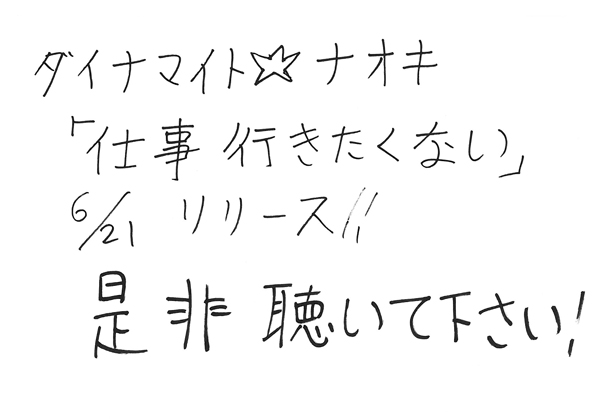 ダイナマイト☆ナオキ
「仕事 行きたくない」
6/21 リリース!!
是非 聴いて下さい!